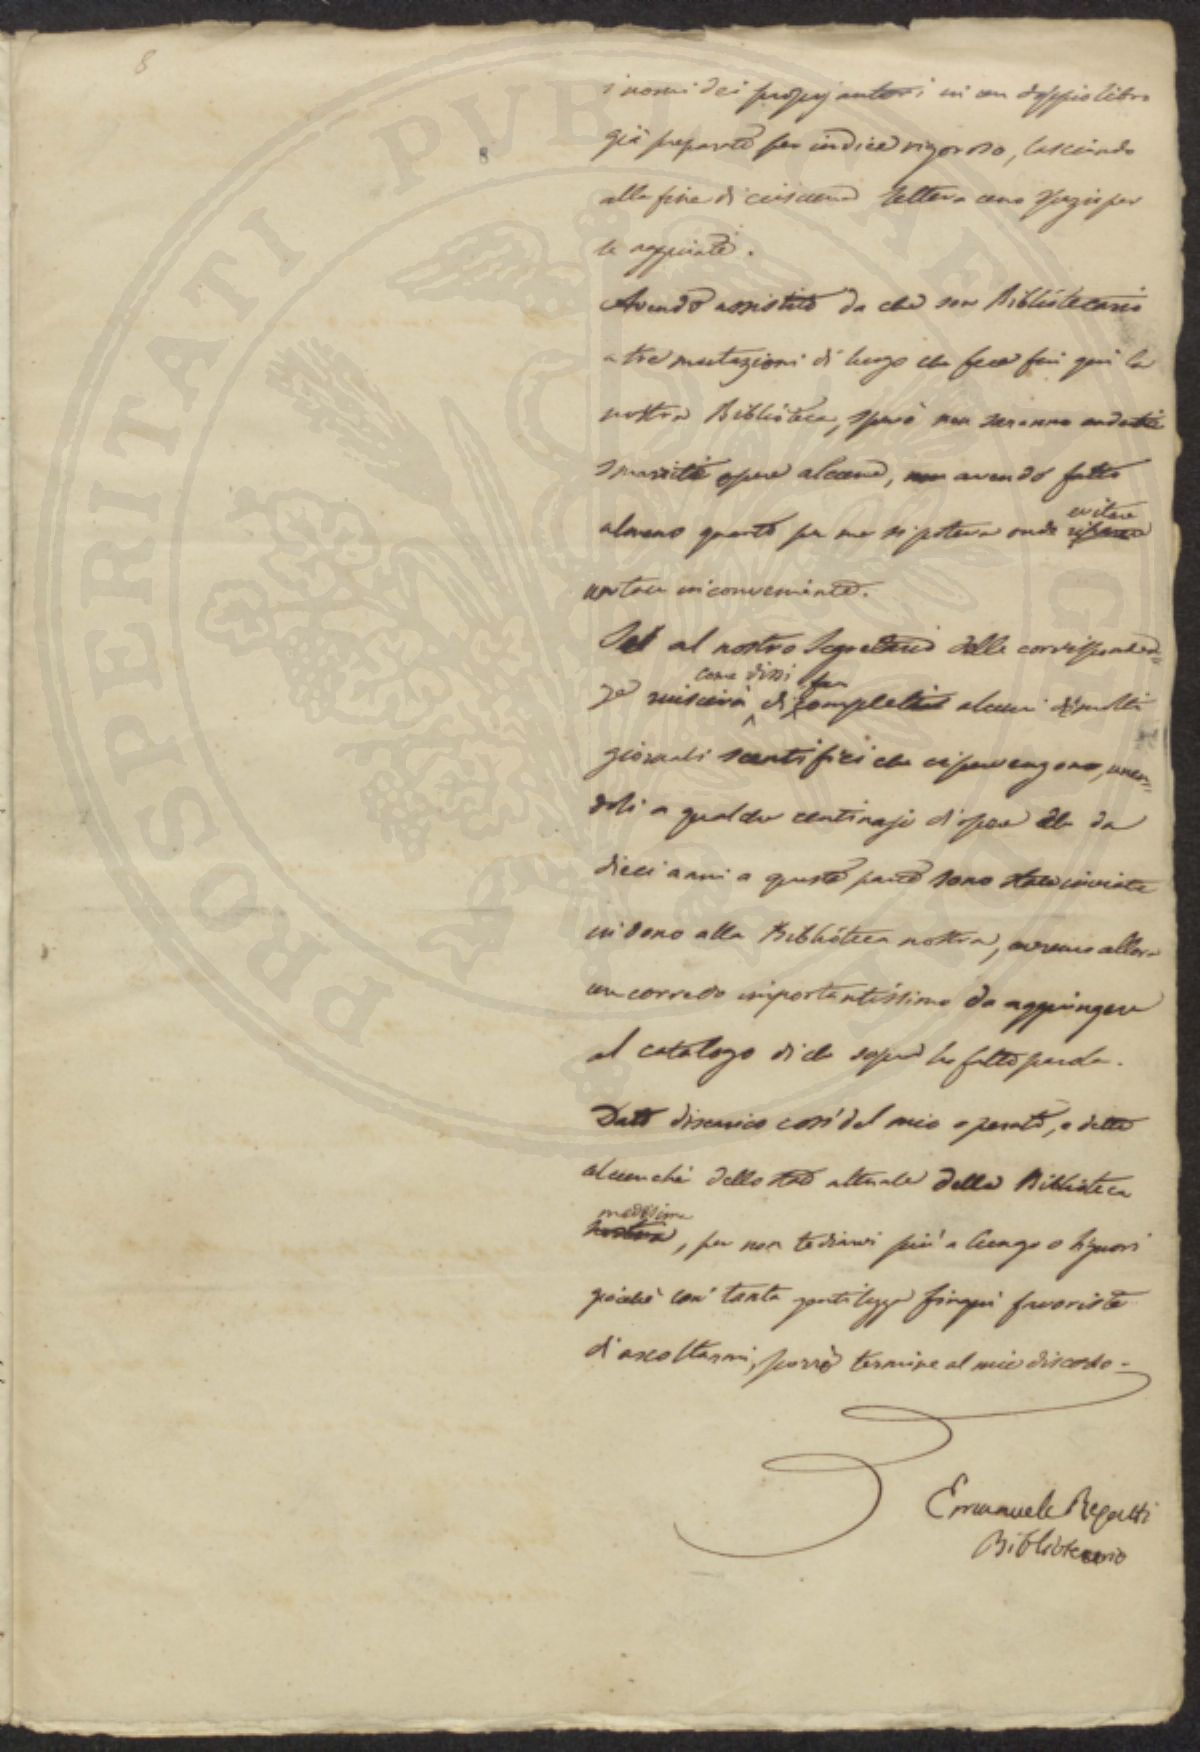 8
i nomi dei proprj autori in un doppio libro
già preparato per indice rigoroso, lasciando
alla fine di ciascuna lettera uno spazio per
le aggiunte.
Avendo assistito da che son Bibliotecario
a tre mutazioni di luogo che fece fin qui la
nostra Biblioteca, spero non saranno andate
smarrite opere alcune, avendo fatto
almeno quanto per me si poteva onde evitare
un tale inconveniente.
Se al nostro Segretario delle corrisponden=
come dissi far
ze riuscirà di completi alcuni di molti
giornali scentifici che ci pervengono, unen=
doli a qualche centinajo di opere che da
dieci anni a questa parte sono state inviate
in dono alla Biblioteca nostra, avremo allora
un corredo importantissimo da aggiungere
al catalogo di che sopra ho fatto parola.
Dato discarico così del mio operato, e detto
alcunchè dello stato attuale della Biblioteca
medesima
nostra, per non tediarvi più a lungo o Signori
poichè con tanta gentilezza finqui favoriste
di ascoltarmi, porrò termine al mio discorso.
Emanuele Regatti
Bibliotecario
PROSPERITATI PUBLICAE